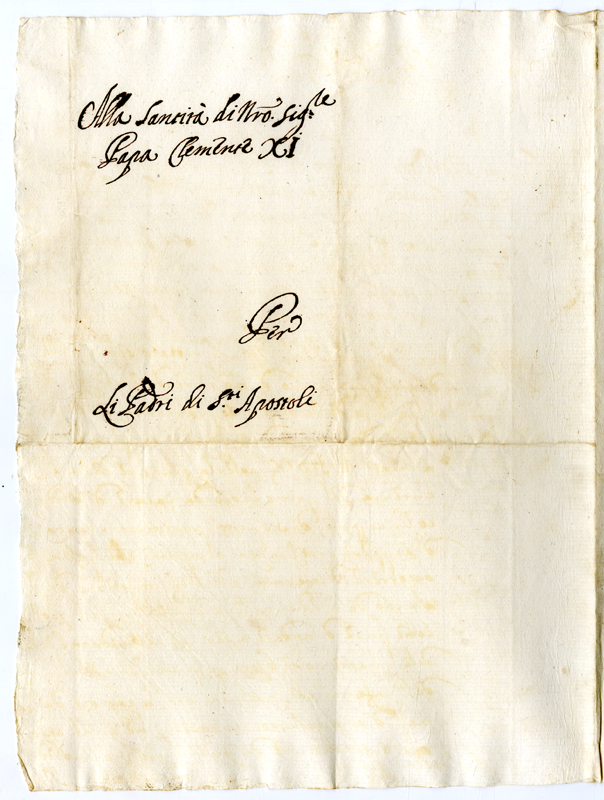 Alla Santità di Nro. Sig.re
Papa Clemente XI
Per
Li Padri di S.ti Apostoli